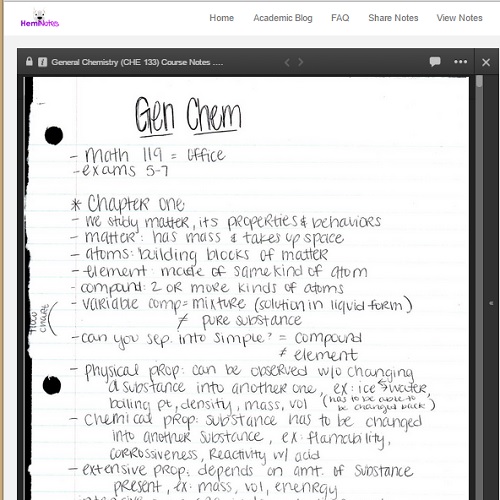 HemiNotes
Home Academic Blog FAQ Share Notes View Notes
General Chemistry (CHE 133) Course Notes ....
Gen Chem
- math 119 = office
- exams 5-7
* Chapter one
- we study matter, its properties & behaviors
- matter: has mass & takes up space
- atoms: building blocks of matter
- element: made of same kind of atom
- compound: 2 or more kinds of atoms
- variable comp = mixture (solution in liquid form)
≠ pure substance
flow chart
- can you sep. into simple? = compound
≠ element
- physical prop: can be observed w/o changing
a substance into another one, ex: ice ↔ water,
boiling pt, density, mass, vol (has to be able to
be changed back)
- chemical prop: substance has to be changed
into another substance, ex: flamability,
corrossiveness, reactivity w/ acid
- extensive prop: depends on amt. of substance
present, ex: mass, vol, enenrgy